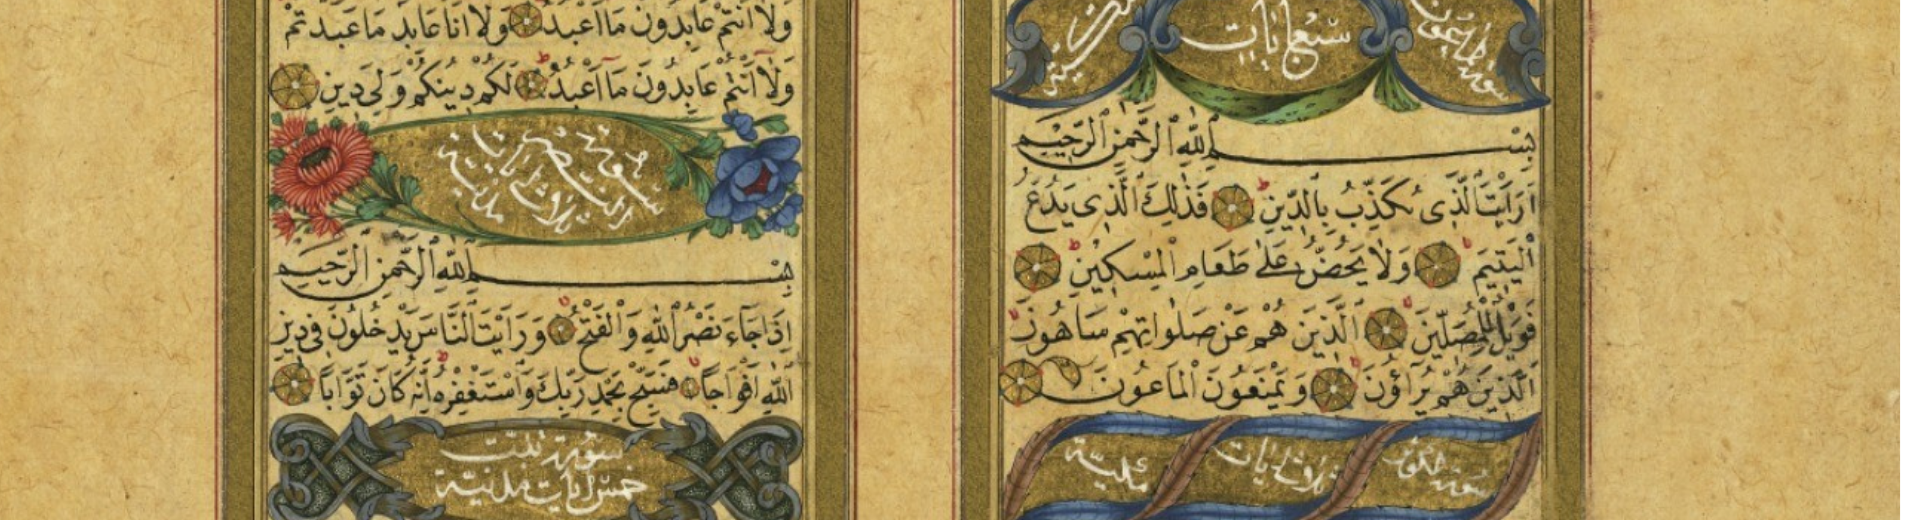 سورة الماعون سبع ايات مكية
بِسْمِ اللهِ الرَّحْمٰنِ الرَّحِيمِ
اَرَاَيْتَ الَّذِى يُكَذِّبُ بِالدِّينِ فَذٰلِكَ الَّذِى يَدُعُّ
الْيَتِيمَ وَلَا يَحُضُّ عَلٰى طَعَامِ الْمِسْكِينِ
فَوَيْلٌ لِلْمُصَلِّينَ الَّذِينَ هُمْ عَنْ صَلَوَاتِهِمْ سَاهُونَ
الَّذِينَ هُمْ يُرَاؤُنَ وَيَمْنَعُونَ الْمَاعُونَ
سورة الكوثر ثلاث ايات مكية
وَلَا اَنْتُمْ عَابِدُونَ مَا اَعْبُدُ وَلَا اَنَا عَابِدٌ مَا عَبَدْتُمْ
وَلَا اَنْتُمْ عَابِدُونَ مَا اَعْبُدُ لَكُمْ دِينُكُمْ وَلِيَ دِينِ
سورة النصر ثلاث ايات مدنية
بِسْمِ اللهِ الرَّحْمٰنِ الرَّحِيمِ
اِذَا جَاءَ نَصْرُ اللهِ وَالْفَتْحُ وَرَاَيْتَ النَّاسَ يَدْخُلُونَ فِى دِينِ
اللهِ اَفْوَاجًا فَسَبِّحْ بِحَمْدِ رَبِّكَ وَاسْتَغْفِرْهُ اِنَّهُ كَانَ تَوَّابًا
سورة تبت
خمس ايات مدنية